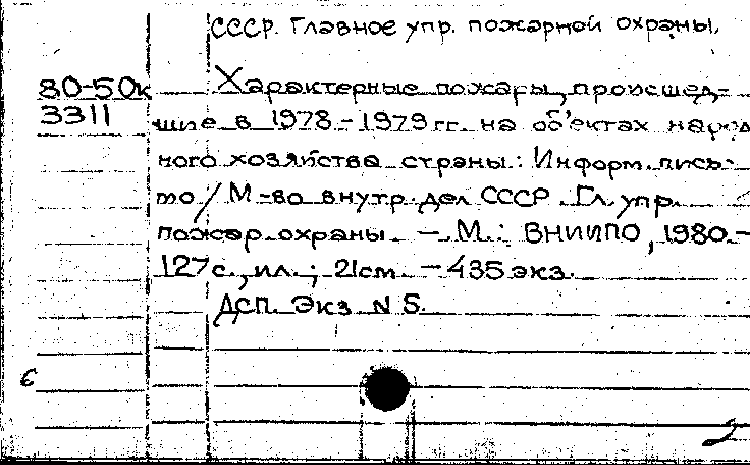 СССР. Главное упр. пожарной охраны.
80-50к
3311
Характерные пожары, происшед-
шие в 1978-1979 гг. на об'ектах народ
ного хозяйства страны: Информ. пись-
мо / М-во внутр. дел СССР. Гл. упр.
пожар. охраны. — М.: ВНИИПО, 1980.-
127 с., ил.; 21 см. — 435 экз.
ДСП. Экз. N 5.
2